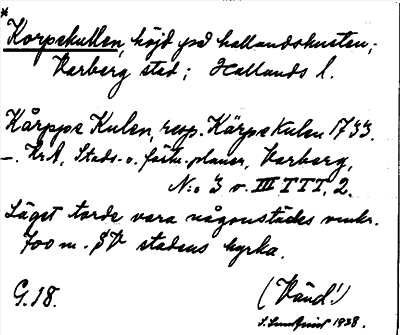 *
Korpskullen, höjd på hallandskusten;
Varberg stad; Hallands l.
Kårpps Kulen, resp. Kårps Kulen 1733.
–. KrA, Stads- o. förtn.planer, Varberg,
N:o 3 o. III TTT. 2.
Läget torde vara någonstädes omkr.
700 m. SV stadens kyrka.
G. 18.
(Vänd!)
S. Lundqvist 1938.